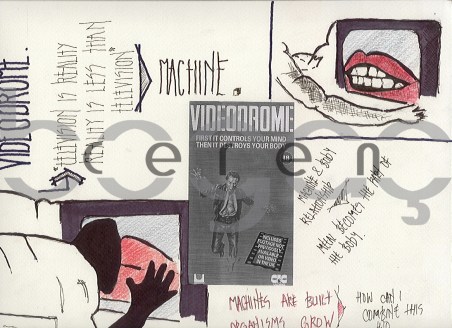 VIDEODROME.
"TELEVISION IS REALITY
REALITY IS LESS THAN
TELEVISION"
MACHINE.
VIDEODROME
FIRST IT CONTROLS YOUR MIND
THEN IT DESTROYS YOUR BODY
INCLUDES
FOOTAGE NOT
PREVIOUSLY
AVAILABLE
ON VIDEO
CIC
ceren
MACHINE & BODY
RELATIONSHIP
MEN BECOMES THE
OF
THE BODY.
MACHINES ARE BUILT
ORGANISMS GROW
HOW CAN I
COMBINE THIS